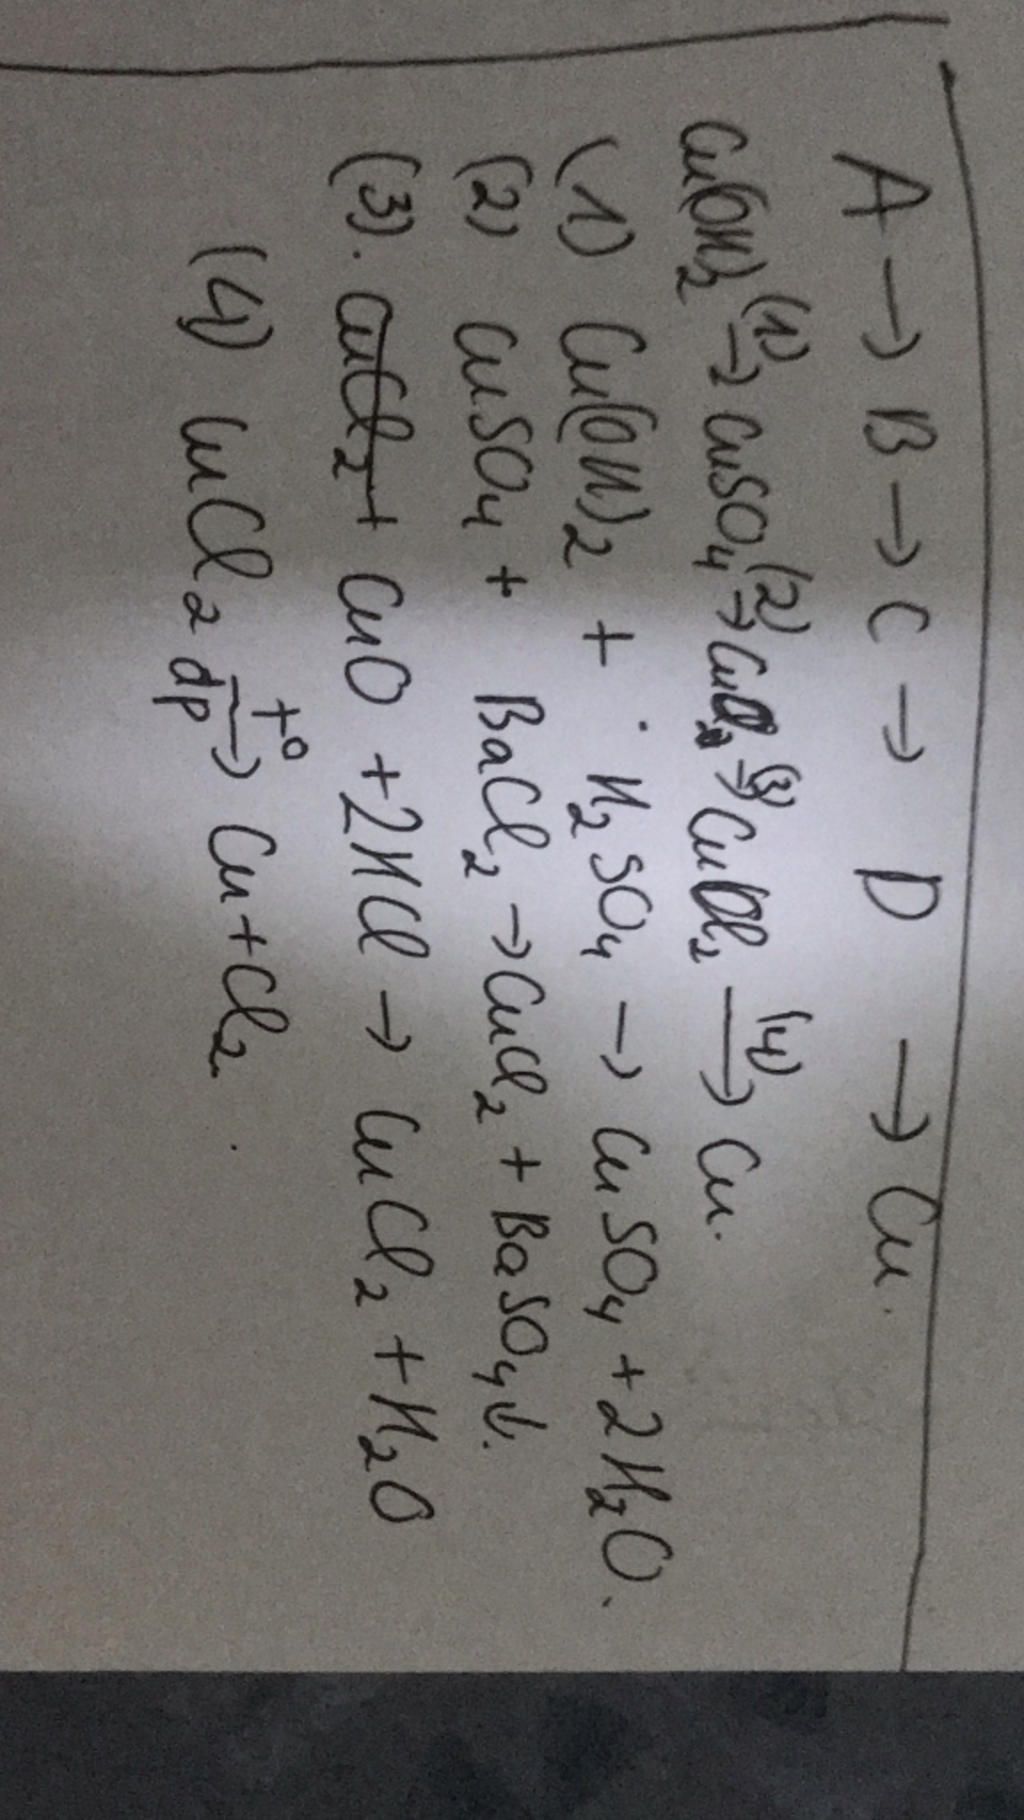 A → B → C → D → Cu.
Cu(OH)₂ (1)→ CuSO₄ (2)→ (3)→ (4)→ Cu.
(1) Cu(OH)₂ + H₂SO₄ → CuSO₄ + 2H₂O.
(2) CuSO₄ + BaCl₂ → CuCl₂ + BaSO₄↓.
(3). CuCl₂ + CuO + 2HCl → CuCl₂ + H₂O
(4) CuCl₂ t⁰→ dp Cu + Cl₂.